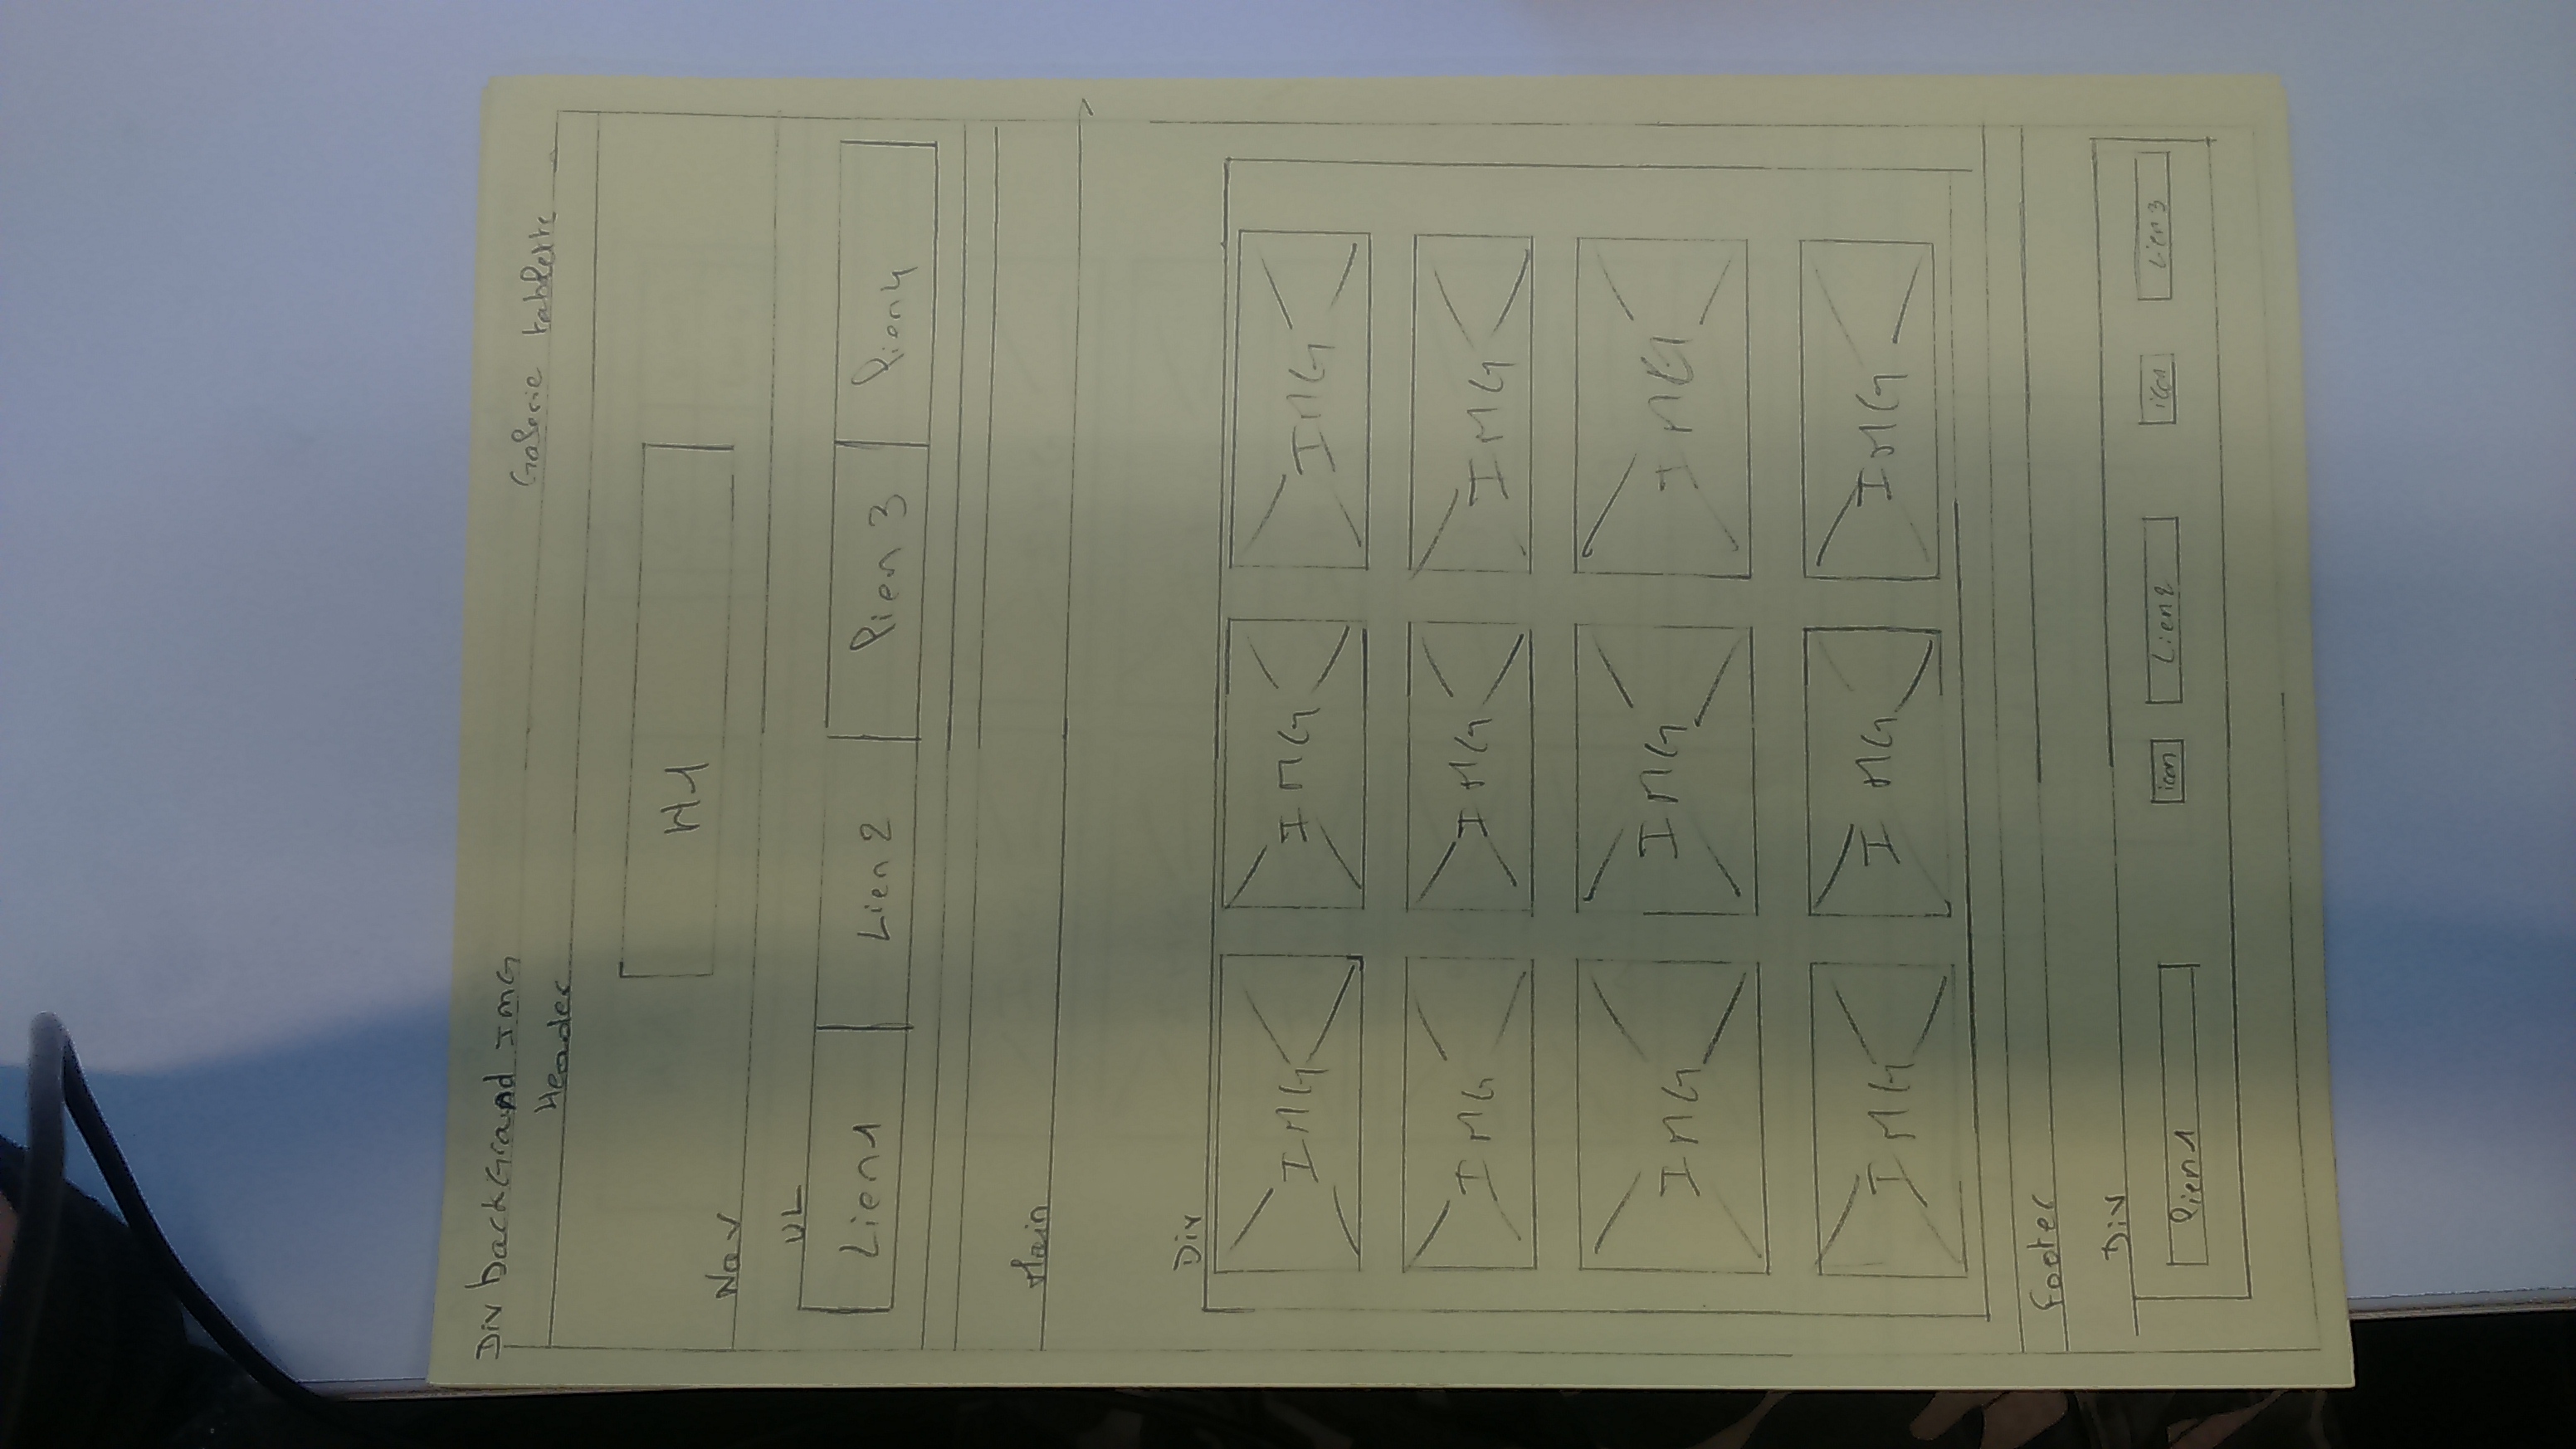 Div backGround IMG
Galerie tablette
Header
H1
Nav
UL
Lien1 Lien 2 lien 3 lien4
Main
Div
IMG IMG IMG
IMG IMG IMG
IMG IMG IMG
IMG IMG IMG
Footer
Div
lien1 icon Lien2 icon Lien3